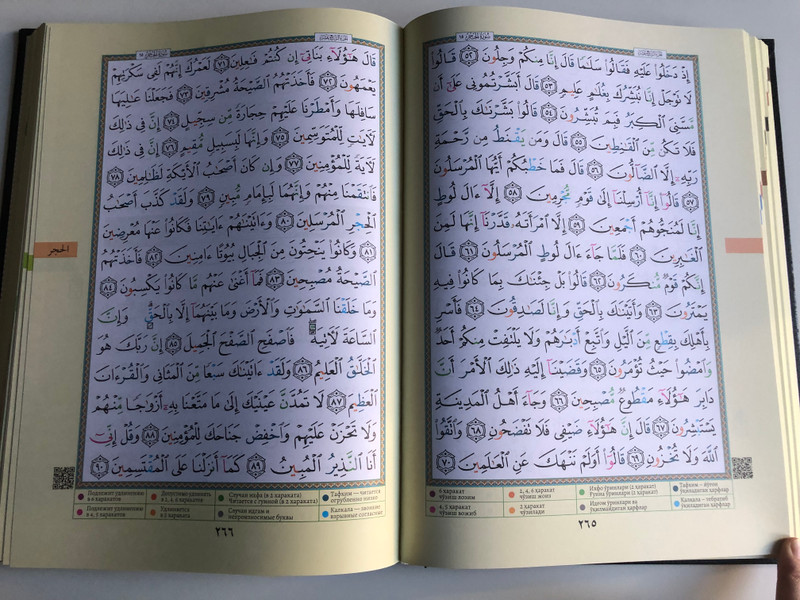 سُورَةُ الحِجْرِ ١٥
إِذْ دَخَلُوا۟ عَلَيْهِ فَقَالُوا۟ سَلَٰمًا قَالَ إِنَّا مِنكُمْ وَجِلُونَ ٥٢ قَالُوا۟
لَا تَوْجَلْ إِنَّا نُبَشِّرُكَ بِغُلَٰمٍ عَلِيمٍ ٥٣ قَالَ أَبَشَّرْتُمُونِى عَلَىٰٓ أَن
مَّسَّنِىَ ٱلْكِبَرُ فَبِمَ تُبَشِّرُونَ ٥٤ قَالُوا۟ بَشَّرْنَٰكَ بِٱلْحَقِّ
فَلَا تَكُن مِّنَ ٱلْقَٰنِطِينَ ٥٥ قَالَ وَمَن يَقْنَطُ مِن رَّحْمَةِ
رَبِّهِۦٓ إِلَّا ٱلضَّآلُّونَ ٥٦ قَالَ فَمَا خَطْبُكُمْ أَيُّهَا ٱلْمُرْسَلُونَ
٥٧ قَالُوٓا۟ إِنَّآ أُرْسِلْنَآ إِلَىٰ قَوْمٍ مُّجْرِمِينَ ٥٨ إِلَّآ ءَالَ لُوطٍ
إِنَّا لَمُنَجُّوهُمْ أَجْمَعِينَ ٥٩ إِلَّا ٱمْرَأَتَهُۥ قَدَّرْنَآ إِنَّهَا لَمِنَ
ٱلْغَٰبِرِينَ ٦٠ فَلَمَّا جَآءَ ءَالَ لُوطٍ ٱلْمُرْسَلُونَ ٦١ قَالَ
إِنَّكُمْ قَوْمٌ مُّنكَرُونَ ٦٢ قَالُوا۟ بَلْ جِئْنَٰكَ بِمَا كَانُوا۟ فِيهِ
يَمْتَرُونَ ٦٣ وَأَتَيْنَٰكَ بِٱلْحَقِّ وَإِنَّا لَصَٰدِقُونَ ٦٤ فَأَسْرِ
بِأَهْلِكَ بِقِطْعٍ مِّنَ ٱلَّيْلِ وَٱتَّبِعْ أَدْبَٰرَهُمْ وَلَا يَلْتَفِتْ مِنكُمْ أَحَدٌ
وَٱمْضُوا۟ حَيْثُ تُؤْمَرُونَ ٦٥ وَقَضَيْنَآ إِلَيْهِ ذَٰلِكَ ٱلْأَمْرَ أَنَّ
دَابِرَ هَٰٓؤُلَآءِ مَقْطُوعٌ مُّصْبِحِينَ ٦٦ وَجَآءَ أَهْلُ ٱلْمَدِينَةِ
يَسْتَبْشِرُونَ ٦٧ قَالَ إِنَّ هَٰٓؤُلَآءِ ضَيْفِى فَلَا تَفْضَحُونِ ٦٨ وَٱتَّقُوا۟
ٱللَّهَ وَلَا تُخْزُونِ ٦٩ قَالُوٓا۟ أَوَلَمْ نَنْهَكَ عَنِ ٱلْعَٰلَمِينَ ٧٠
6 ҳаракат чўзиш лозим
2, 4, 6 ҳаракат чўзиш жоиз
4, 5 ҳаракат чўзиш вожиб
2 ҳаракат чўзилади
٢٦٥
سُورَةُ الحِجْرِ ١٥
قَالَ هَٰٓؤُلَآءِ بَنَاتِىٓ إِن كُنتُمْ فَٰعِلِينَ ٧١ لَعَمْرُكَ إِنَّهُمْ لَفِى سَكْرَتِهِمْ
يَعْمَهُونَ ٧٢ فَأَخَذَتْهُمُ ٱلصَّيْحَةُ مُشْرِقِينَ ٧٣ فَجَعَلْنَا عَٰلِيَهَا
سَافِلَهَا وَأَمْطَرْنَا عَلَيْهِمْ حِجَارَةً مِّن سِجِّيلٍ ٧٤ إِنَّ فِى ذَٰلِكَ
لَءَايَٰتٍ لِّلْمُتَوَسِّمِينَ ٧٥ وَإِنَّهَا لَبِسَبِيلٍ مُّقِيمٍ ٧٦ إِنَّ فِى ذَٰلِكَ
لَءَايَةً لِّلْمُؤْمِنِينَ ٧٧ وَإِن كَانَ أَصْحَٰبُ ٱلْأَيْكَةِ لَظَٰلِمِينَ ٧٨
فَٱنتَقَمْنَا مِنْهُمْ وَإِنَّهُمَا لَبِإِمَامٍ مُّبِينٍ ٧٩ وَلَقَدْ كَذَّبَ أَصْحَٰبُ
ٱلْحِجْرِ ٱلْمُرْسَلِينَ ٨٠ وَءَاتَيْنَٰهُمْ ءَايَٰتِنَا فَكَانُوا۟ عَنْهَا مُعْرِضِينَ
٨١ وَكَانُوا۟ يَنْحِتُونَ مِنَ ٱلْجِبَالِ بُيُوتًا ءَامِنِينَ ٨٢ فَأَخَذَتْهُمُ
ٱلصَّيْحَةُ مُصْبِحِينَ ٨٣ فَمَآ أَغْنَىٰ عَنْهُم مَّا كَانُوا۟ يَكْسِبُونَ ٨٤
وَمَا خَلَقْنَا ٱلسَّمَٰوَٰتِ وَٱلْأَرْضَ وَمَا بَيْنَهُمَآ إِلَّا بِٱلْحَقِّ وَإِنَّ
ٱلسَّاعَةَ لَءَاتِيَةٌ فَٱصْفَحِ ٱلصَّفْحَ ٱلْجَمِيلَ ٨٥ إِنَّ رَبَّكَ هُوَ
ٱلْخَلَّٰقُ ٱلْعَلِيمُ ٨٦ وَلَقَدْ ءَاتَيْنَٰكَ سَبْعًا مِّنَ ٱلْمَثَانِى وَٱلْقُرْءَانَ
ٱلْعَظِيمَ ٨٧ لَا تَمُدَّنَّ عَيْنَيْكَ إِلَىٰ مَا مَتَّعْنَا بِهِۦٓ أَزْوَٰجًا مِّنْهُمْ
وَلَا تَحْزَنْ عَلَيْهِمْ وَٱخْفِضْ جَنَاحَكَ لِلْمُؤْمِنِينَ ٨٨ وَقُلْ إِنِّىٓ
أَنَا ٱلنَّذِيرُ ٱلْمُبِينُ ٨٩ كَمَآ أَنزَلْنَا عَلَى ٱلْمُقْتَسِمِينَ ٩٠
الحجر
Подлежит удлинению в 6 харакатов
Допустимо удлинять в 2, 4, 6 харакатов
Случаи ихфа (в 2 хараката) Читается с гунной (в 2 хараката)
Подлежит удлинению в 4, 5 харакатов
Удлиняется в 2 хараката
Случаи идгам и непроизносимые буквы
٢٦٦